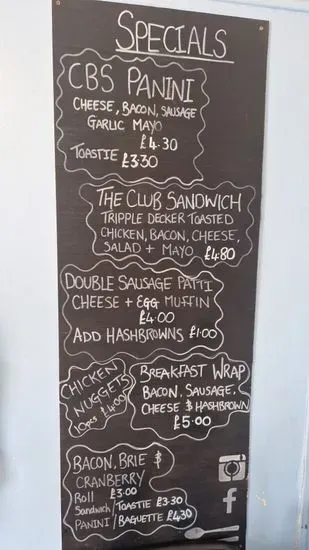 SPECIALS
CBS PANINI
CHEESE, BACON, SAUSAGE
GARLIC MAYO
£4.30
TOASTIE £3.30
THE CLUB SANDWICH
TRIPPLE DECKER TOASTED
CHICKEN, BACON, CHEESE,
SALAD + MAYO £4.80
DOUBLE SAUSAGE PATTI
CHEESE + EGG MUFFIN
£4.00
ADD HASHBROWNS £1.00
CHICKEN
NUGGETS
10PCS £4.00
BREAKFAST WRAP
BACON, SAUSAGE,
CHEESE & HASHBROWN
£5.00
BACON, BRIE &
CRANBERRY
Roll £3.00
Sandwich / TOASTIE £3.30
PANINI / BAGUETTE £4.30
f